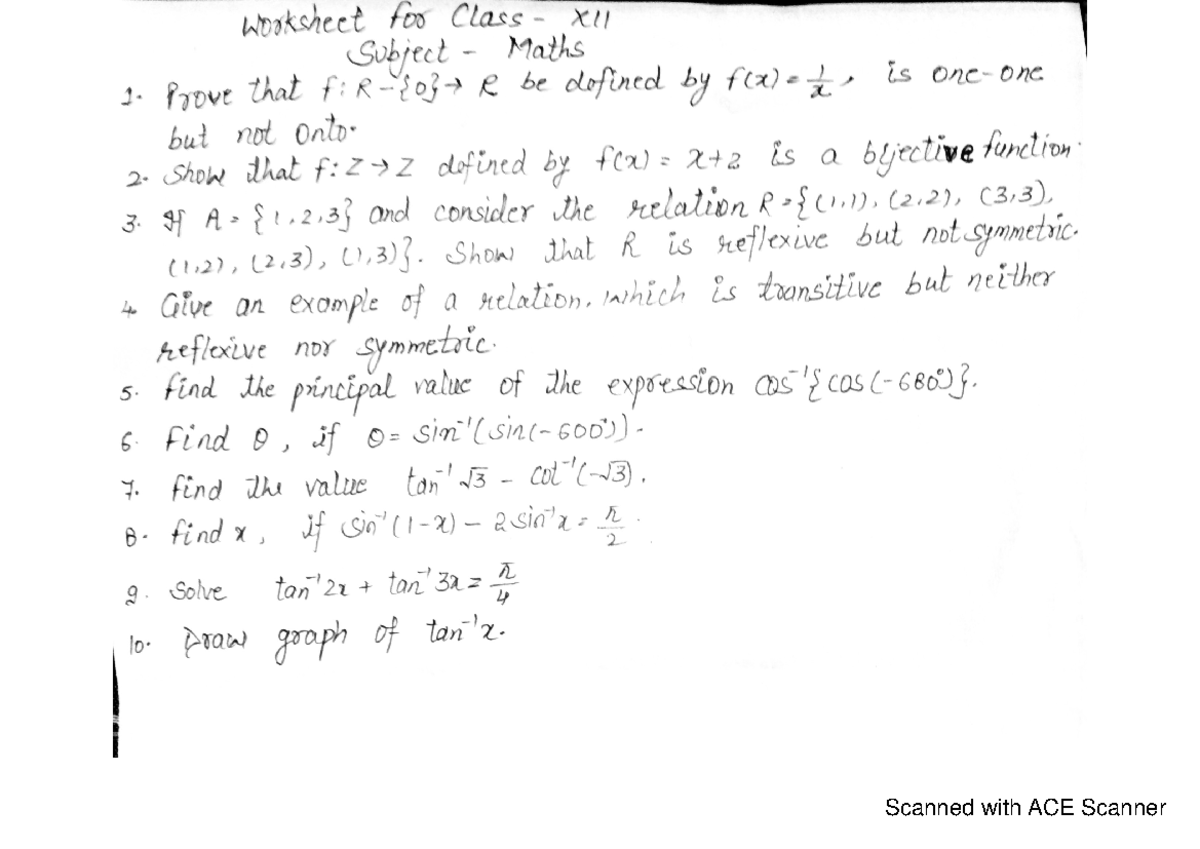 Worksheet for Class - XII
Subject - Maths
1. Prove that f: R-{0}→ R be defined by f(x) = 1/x, is one-one
but not onto.
2. Show that f: Z → Z defined by f(x) = x+2 is a bijective function.
3. If A = {1,2,3} and consider the relation R = {(1,1), (2,2), (3,3),
(1,2), (2,3), (1,3)}. Show that R is reflexive but not symmetric.
4. Give an example of a relation. which is transitive but neither
reflexive nor symmetric.
5. find the principal value of the expression cos⁻¹{cos(-680°)}.
6. Find θ, if θ = sin⁻¹(sin(-600°)).
7. find the value tan⁻¹√3 - cot⁻¹(-√3).
8. find x, if sin⁻¹(1-x) - 2 sin⁻¹x = π/2.
9. Solve tan⁻¹2x + tan⁻¹3x = π/4
10. Draw graph of tan⁻¹x.
Scanned with ACE Scanner